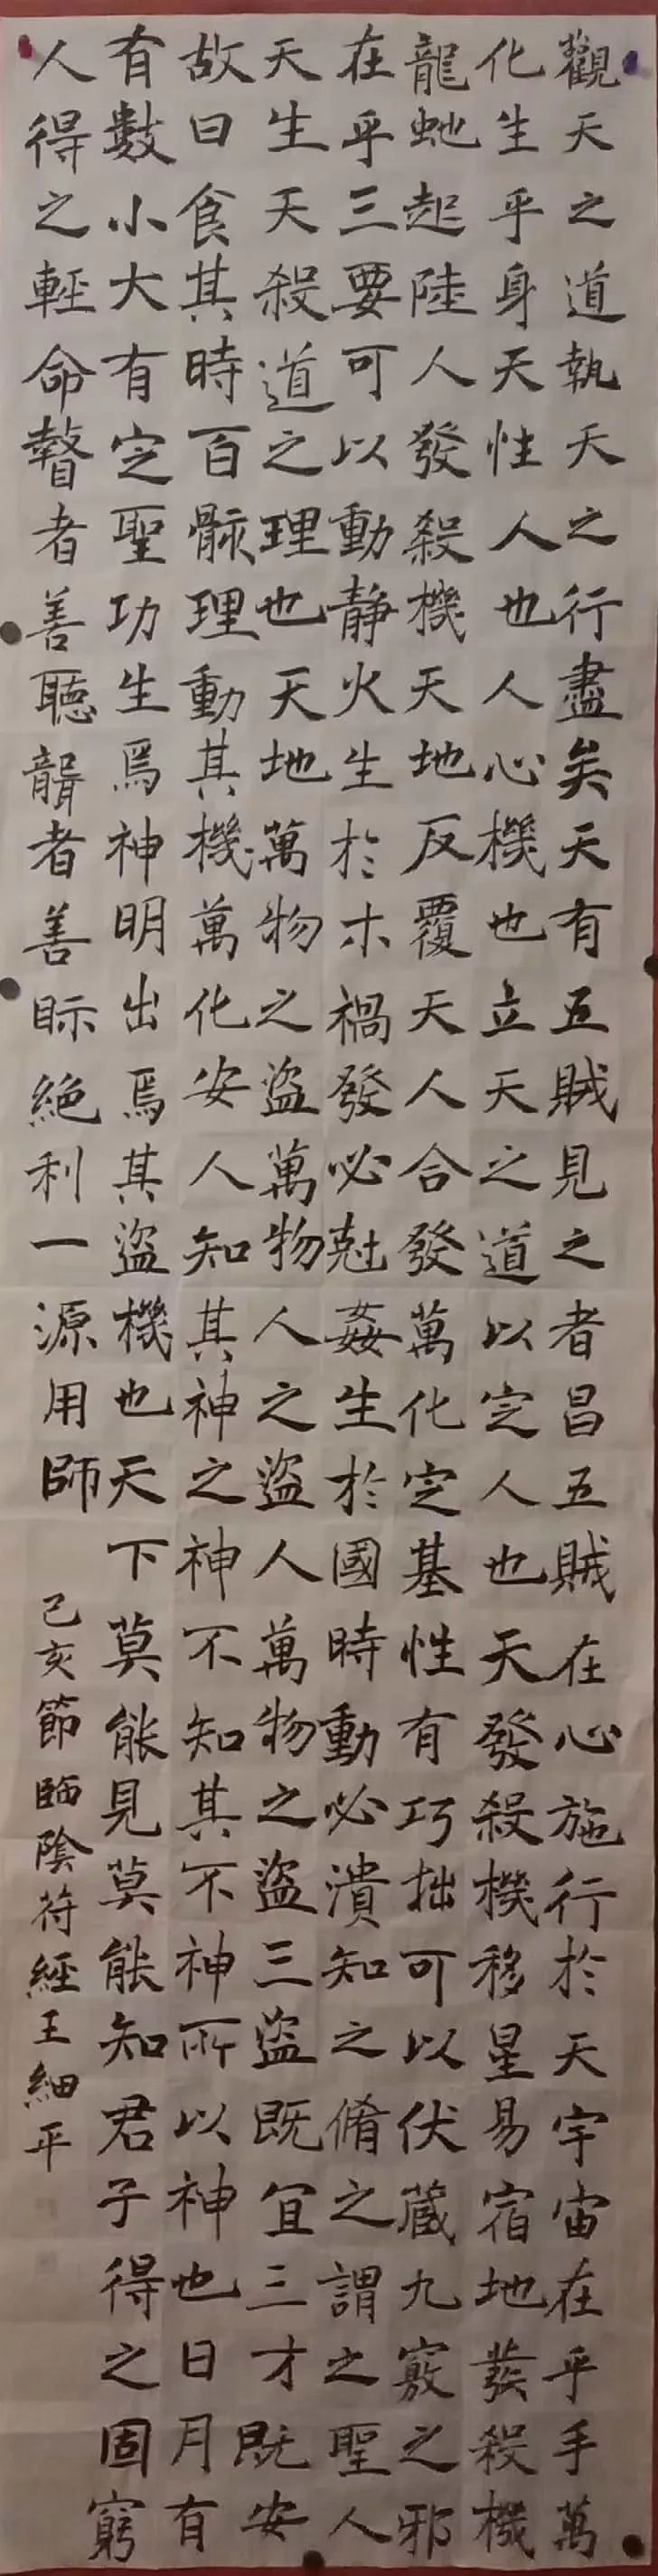 觀天之道執天之行盡矣天有五賊見之者昌五賊在心施行於天宇宙在乎手萬
化生乎身天性人也人心機也立天之道以定人也天發殺機移星易宿地發殺機
龍虵起陸人發殺機天地反覆天人合發萬化定基性有巧拙可以伏藏九竅之邪
在乎三要可以動靜火生於木禍發必尅姦生於國時動必潰知之脩之謂之聖人
天生天殺道之理也天地萬物之盜萬物人之盜人萬物之盜三盜既宜三才既安
故曰食其時百骸理動其機萬化安人知其神之神不知其不神所以神也日月有
有數小大有定聖功生焉神明出焉其盜機也天下莫能見莫能知君子得之固窮
人得之輕命瞽者善聽聾者善眎絕利一源用師
己亥節臨陰符經王細平